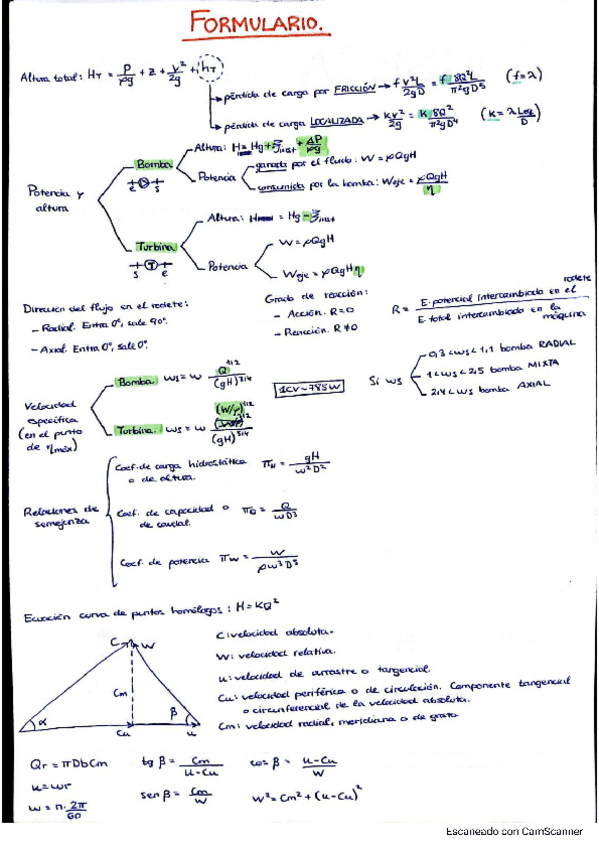 FORMULARIO.
Altura total: H_T = P/ρg + z + v²/2g + h_r
→ pérdida de carga por FRICCIÓN → f v²L/2gD = f 8Q²L/π²gD⁵ (f=λ)
→ pérdida de carga LOCALIZADA → k v²/2g = k 8Q²/π²gD⁴ (k = λ Leq/D)
Potencia y altura
Bomba
e s
Altura: H = Hg + ξinst + ΔP/ρg
Potencia
ganada por el fluido: W = ρQgH
consumida por la bomba: Weje = ρQgH/η
Turbina
s T e
Altura: H = Hg - ξinst
Potencia
W = ρQgH
Weje = ρQgHη
Dirección del flujo en el rodete:
- Radial. Entra 0°, sale 90°.
- Axial. Entra 0°, sale 0°.
Grado de reacción:
- Acción. R=0
- Reacción. R≠0
R = E. potencial intercambiada en el rodete / E. total intercambiada en la máquina
Velocidad específica (en el punto de ηmáx)
Bomba ws = w Q^1/2/(gH)^3/4
1CV ~ 785W
Turbina. ws = w (W/ρ)^1/2/(gH)^5/4
Si ws
0,3<ws<1,1 bomba RADIAL
1<ws<2,5 bomba MIXTA
2,4<ws bomba AXIAL
Relaciones de semejanza
Coef. de carga hidrostática o de altura. π_H = gH/w²D²
Coef. de capacidad o de caudal. π_Q = Q/wD³
Coef. de potencia π_W = W/ρw³D⁵
Ecuación curva de puntos homólogos: H = KQ²
C W
Cm
α β
Cu u
C: velocidad absoluta.
W: velocidad relativa.
u: velocidad de arrastre o tangencial.
Cu: velocidad periférica o de circulación. Componente tangencial
o circunferencial de la velocidad absoluta.
Cm: velocidad radial, meridiana o de
Qr = πDbCm
u = wr
w = n · 2π/60
tg β = Cm/u-Cu
sen β = Cm/W
cos β = u-Cu/W
W² = Cm² + (u-Cu)²
Escaneado con CamScanner